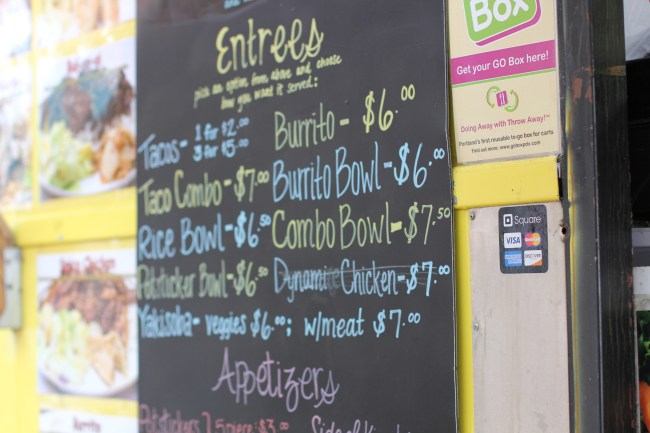 Entrees
pick an option from above and choose
how you want it served:
Tacos - 1 for $2.00
3 for $5.00
Taco Combo - $7.00
Rice Bowl - $6.50
Potsticker Bowl - $6.50
Yakisoba - veggies $6.00; w/meat $7.00
Burrito - $6.00
Burrito Bowl - $6.00
Combo Bowl - $7.50
Dynamite Chicken - $7.00
Appetizers
Potstickers 5 piece $3.00
Side of
Box
Get your GO Box here!
Doing Away with Throw Away!™
Portland's first reusable to-go box for carts
Find out more: www.goboxpdx.com
Square
VISA
MasterCard
DISCOVER
Burrito